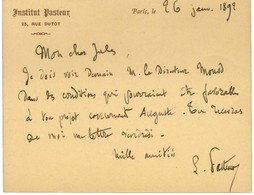 Institut Pasteur
25, RUE DUTOT
Paris, le 26 janv. 1898
Mon cher Jules,
Je dois voir demain M. le Directeur Monod
dans des conditions qui pourraient être favorables
à ton projet concernant Auguste.
que moi
mille amitiés